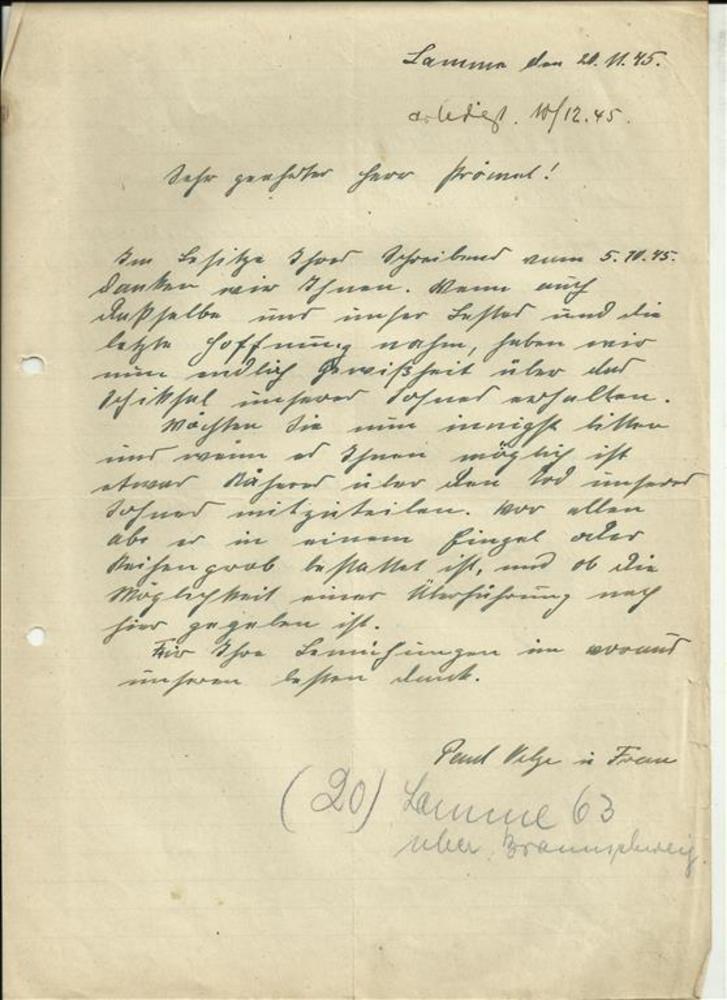 Lamme den 20.11.45.
erledigt. 10/12.45.
Sehr geehrter Herr Prömel!
Im Besitze Ihres Schreibens vom 5.10.45.
danken wir Ihnen. Wenn auch
dasselbe uns unser Bestes und die
letzte Hoffnung nahm, haben wir
nun endlich Gewißheit über das
Schiksal unseres Sohnes erhalten.
Möchten Sie nun innigst bitten
uns wenn es Ihnen möglich ist
etwas Näheres über den Tod unseres
Sohnes mitzuteilen. Vor allen
obs er in einem Einzel oder
Reihengrab bestattet ist, und ob die
Möglichkeit einer Überführung nach
hier gegeben ist.
Für Ihre Bemühungen im voraus
unseren besten Dank.
Paul Velge u Frau
(20) Lamme 63
über Braunschweig